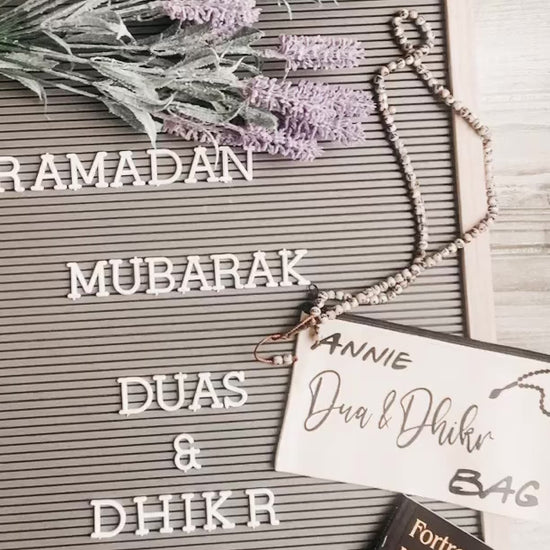 RAMADAN
MUBARAK
DUAS
&
DHIKR
ANNIE
Dua & Dhikr
BAG